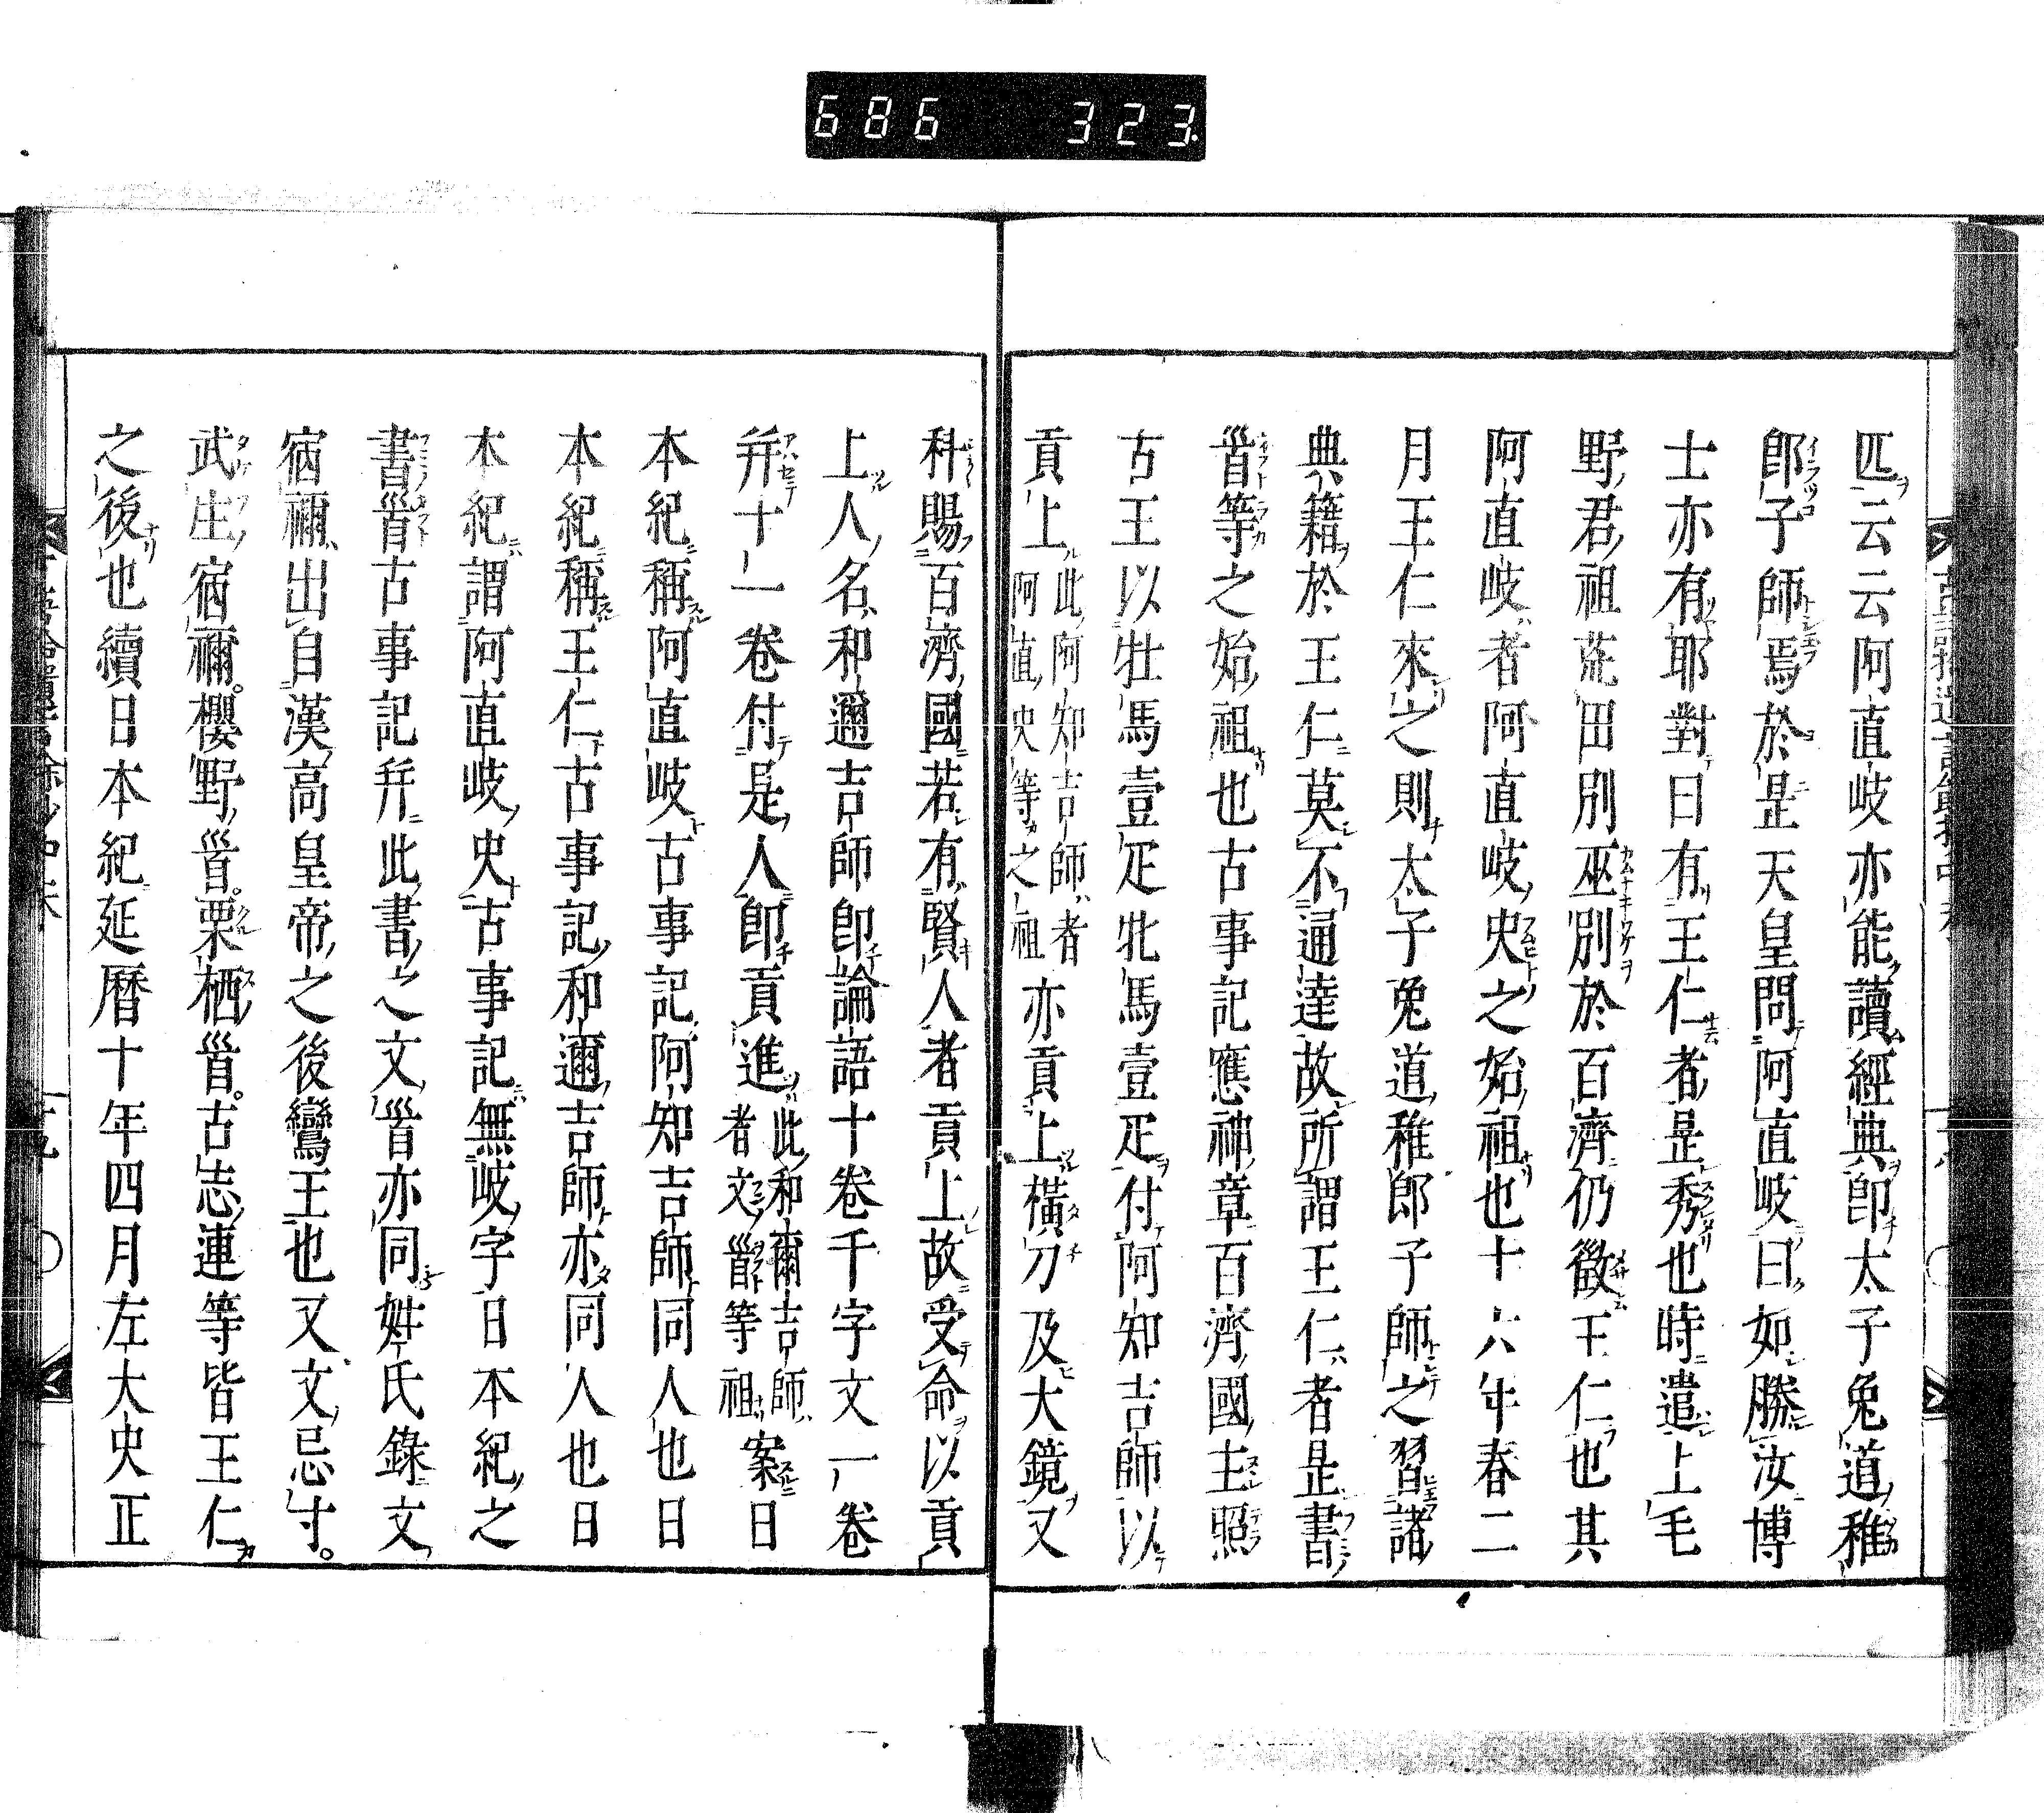 686 323
匹云云阿直岐亦能讀經典卽太子兔道稚
郎子師焉於是天皇問阿直岐曰如勝汝博
士亦有耶對曰有王仁者是秀也時遣上毛
野君祖荒田別巫別於百濟仍徵王仁也其
阿直岐者阿直岐史之始祖也十六年春二
月王仁來之則太子兔道稚郎子師之習諸
典籍於王仁莫不通達故所謂王仁者是書
首等之始祖也古事記應神章百濟國主照
古王以牡馬壹疋牝馬壹疋付阿知吉師以
貢上此阿知吉師者阿直史等之祖亦貢上橫刀及大鏡又
科賜百濟國若有賢人者貢上故受命以貢
上人名和邇吉師卽論語十卷千字文一卷
幷十一卷付是人卽貢進此和爾吉師者文首等祖案日
本紀稱阿直岐古事記阿知吉師同人也日
本紀稱王仁古事記和邇吉師亦同人也日
本紀謂阿直岐史古事記無岐字日本紀之
書首古事記幷此書之文首亦同姓氏錄文
宿禰出自漢高皇帝之後鸞王也又文忌寸
武生宿禰櫻野首栗栖首古志連等皆王仁
之後也續日本紀延曆十年四月左大史正